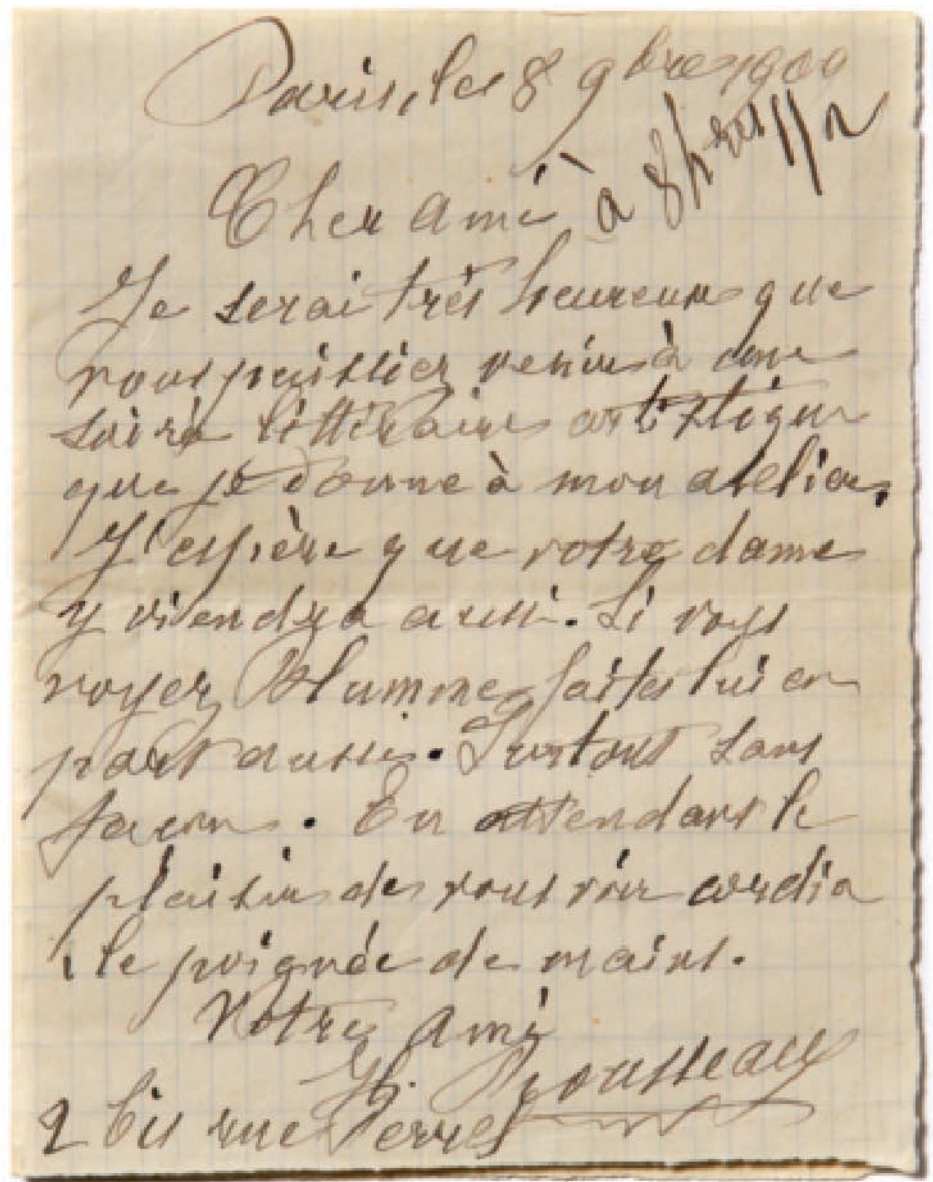 Paris, le 8 9bre 1909
à 8hres 1/2
Cher ami
Je serai très heureux que
vous puissiez venir à une
soiré littéraire artistique
que je donne à mon atelier,
J'espère que votre dame
y viendra aussi. Si vous
voyez Blumme faites lui en
part aussi. Surtout sans
facon. En attendant le
plaisir de vous voir cordia
le poignée de mains.
Votre ami
H. Rousseau
2 bis rue Perrel